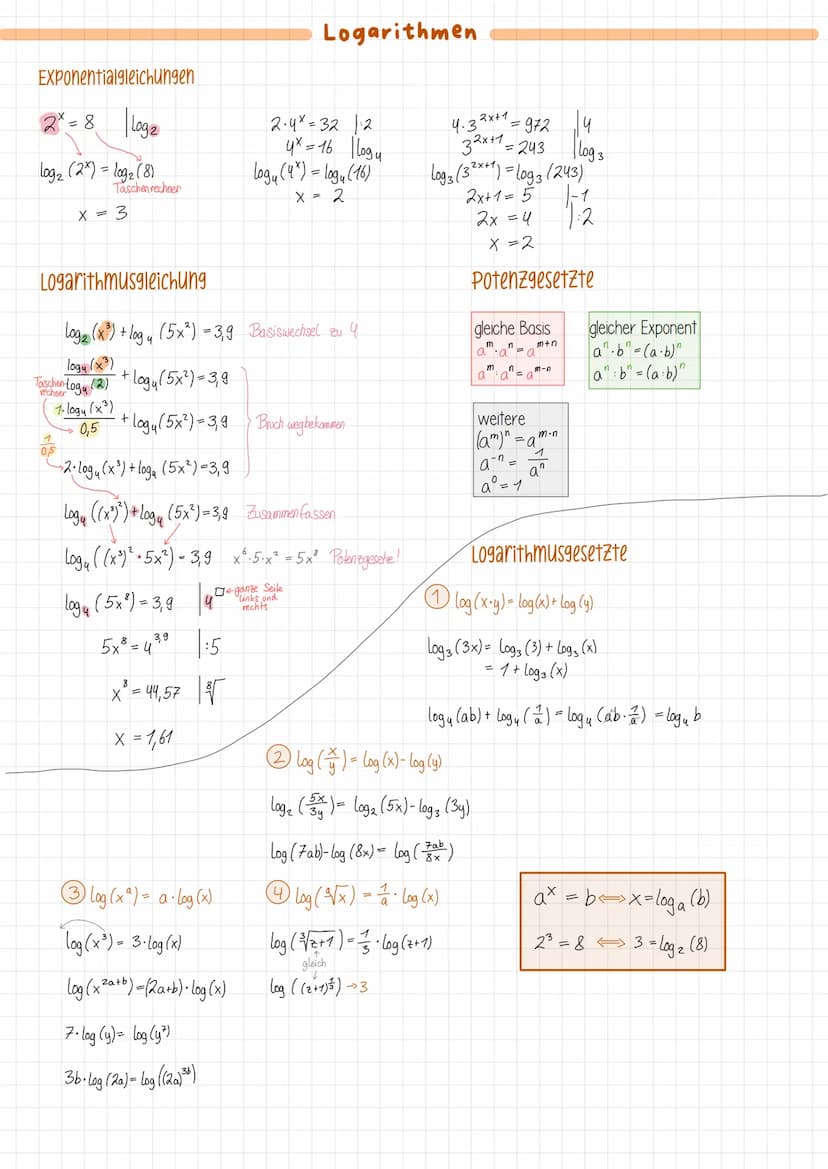 Logarithmen
Exponentialgleichungen
2^x = 8 | log₂
log₂ (2^x) = log₂ (8)
Taschenrechner
x = 3
2·4^x = 32 | :2
4^x = 16 | log₄
log₄ (4^x) = log₄ (16)
x = 2
4·3^(2x+1) = 972 | 4
3^(2x+1) = 243 | log₃
log₃ (3^(2x+1)) = log₃ (243)
2x+1 = 5 | -1
2x = 4 | :2
x = 2
Logarithmusgleichung
log₂ (x³) + log₄ (5x²) = 3,9 Basiswechsel zu 4
log₄ (x³) / log₄ (2) + log₄ (5x²) = 3,9
Taschenrechner
1·log₄ (x³) / 0,5 + log₄ (5x²) = 3,9 Bruch wegbekommen
1/0,5
2·log₄ (x³) + log₄ (5x²) = 3,9
log₄ ((x³)²) + log₄ (5x²) = 3,9 Zusammenfassen
log₄ ((x³)² · 5x²) = 3,9 x⁶·5·x² = 5x⁸ Potenzgesetze!
log₄ (5x⁸) = 3,9 | 4^□ ← ganze Seite links und rechts
5x⁸ = 4^3,9 | :5
x⁸ = 44,57 | ⁸√
x = 1,61
Potenzgesetzte
gleiche Basis
a^m · a^n = a^(m+n)
a^m · a^n = a^(m-n)
gleicher Exponent
a^n · b^n = (a·b)^n
a^n : b^n = (a:b)^n
weitere
(a^m)^n = a^(m·n)
a^-n = 1/a^n
a^0 = 1
Logarithmusgesetzte
① log(x·y) = log(x) + log(y)
log₃ (3x) = log₃ (3) + log₃ (x)
= 1 + log₃ (x)
log₄ (ab) + log₄ (1/a) = log₄ (ab · 1/a) = log₄ b
② log(x/y) = log(x) - log(y)
log₂ (5x/3y) = log₂ (5x) - log₃ (3y)
log(7ab) - log(8x) = log(7ab/8x)
③ log(x^a) = a·log(x)
log(x³) = 3·log(x)
log(x^(2a+b)) = (2a+b)·log(x)
7·log(y) = log(y⁷)
3b·log(2a) = log((2a)^3b)
④ log(ᵃ√x) = 1/a · log(x)
log(³√(z+1)) = 1/3 · log(z+1)
gleich
log((z+1)^(1/3)) → 3
a^x = b ⟺ x = log_a (b)
2³ = 8 ⟺ 3 = log₂ (8)